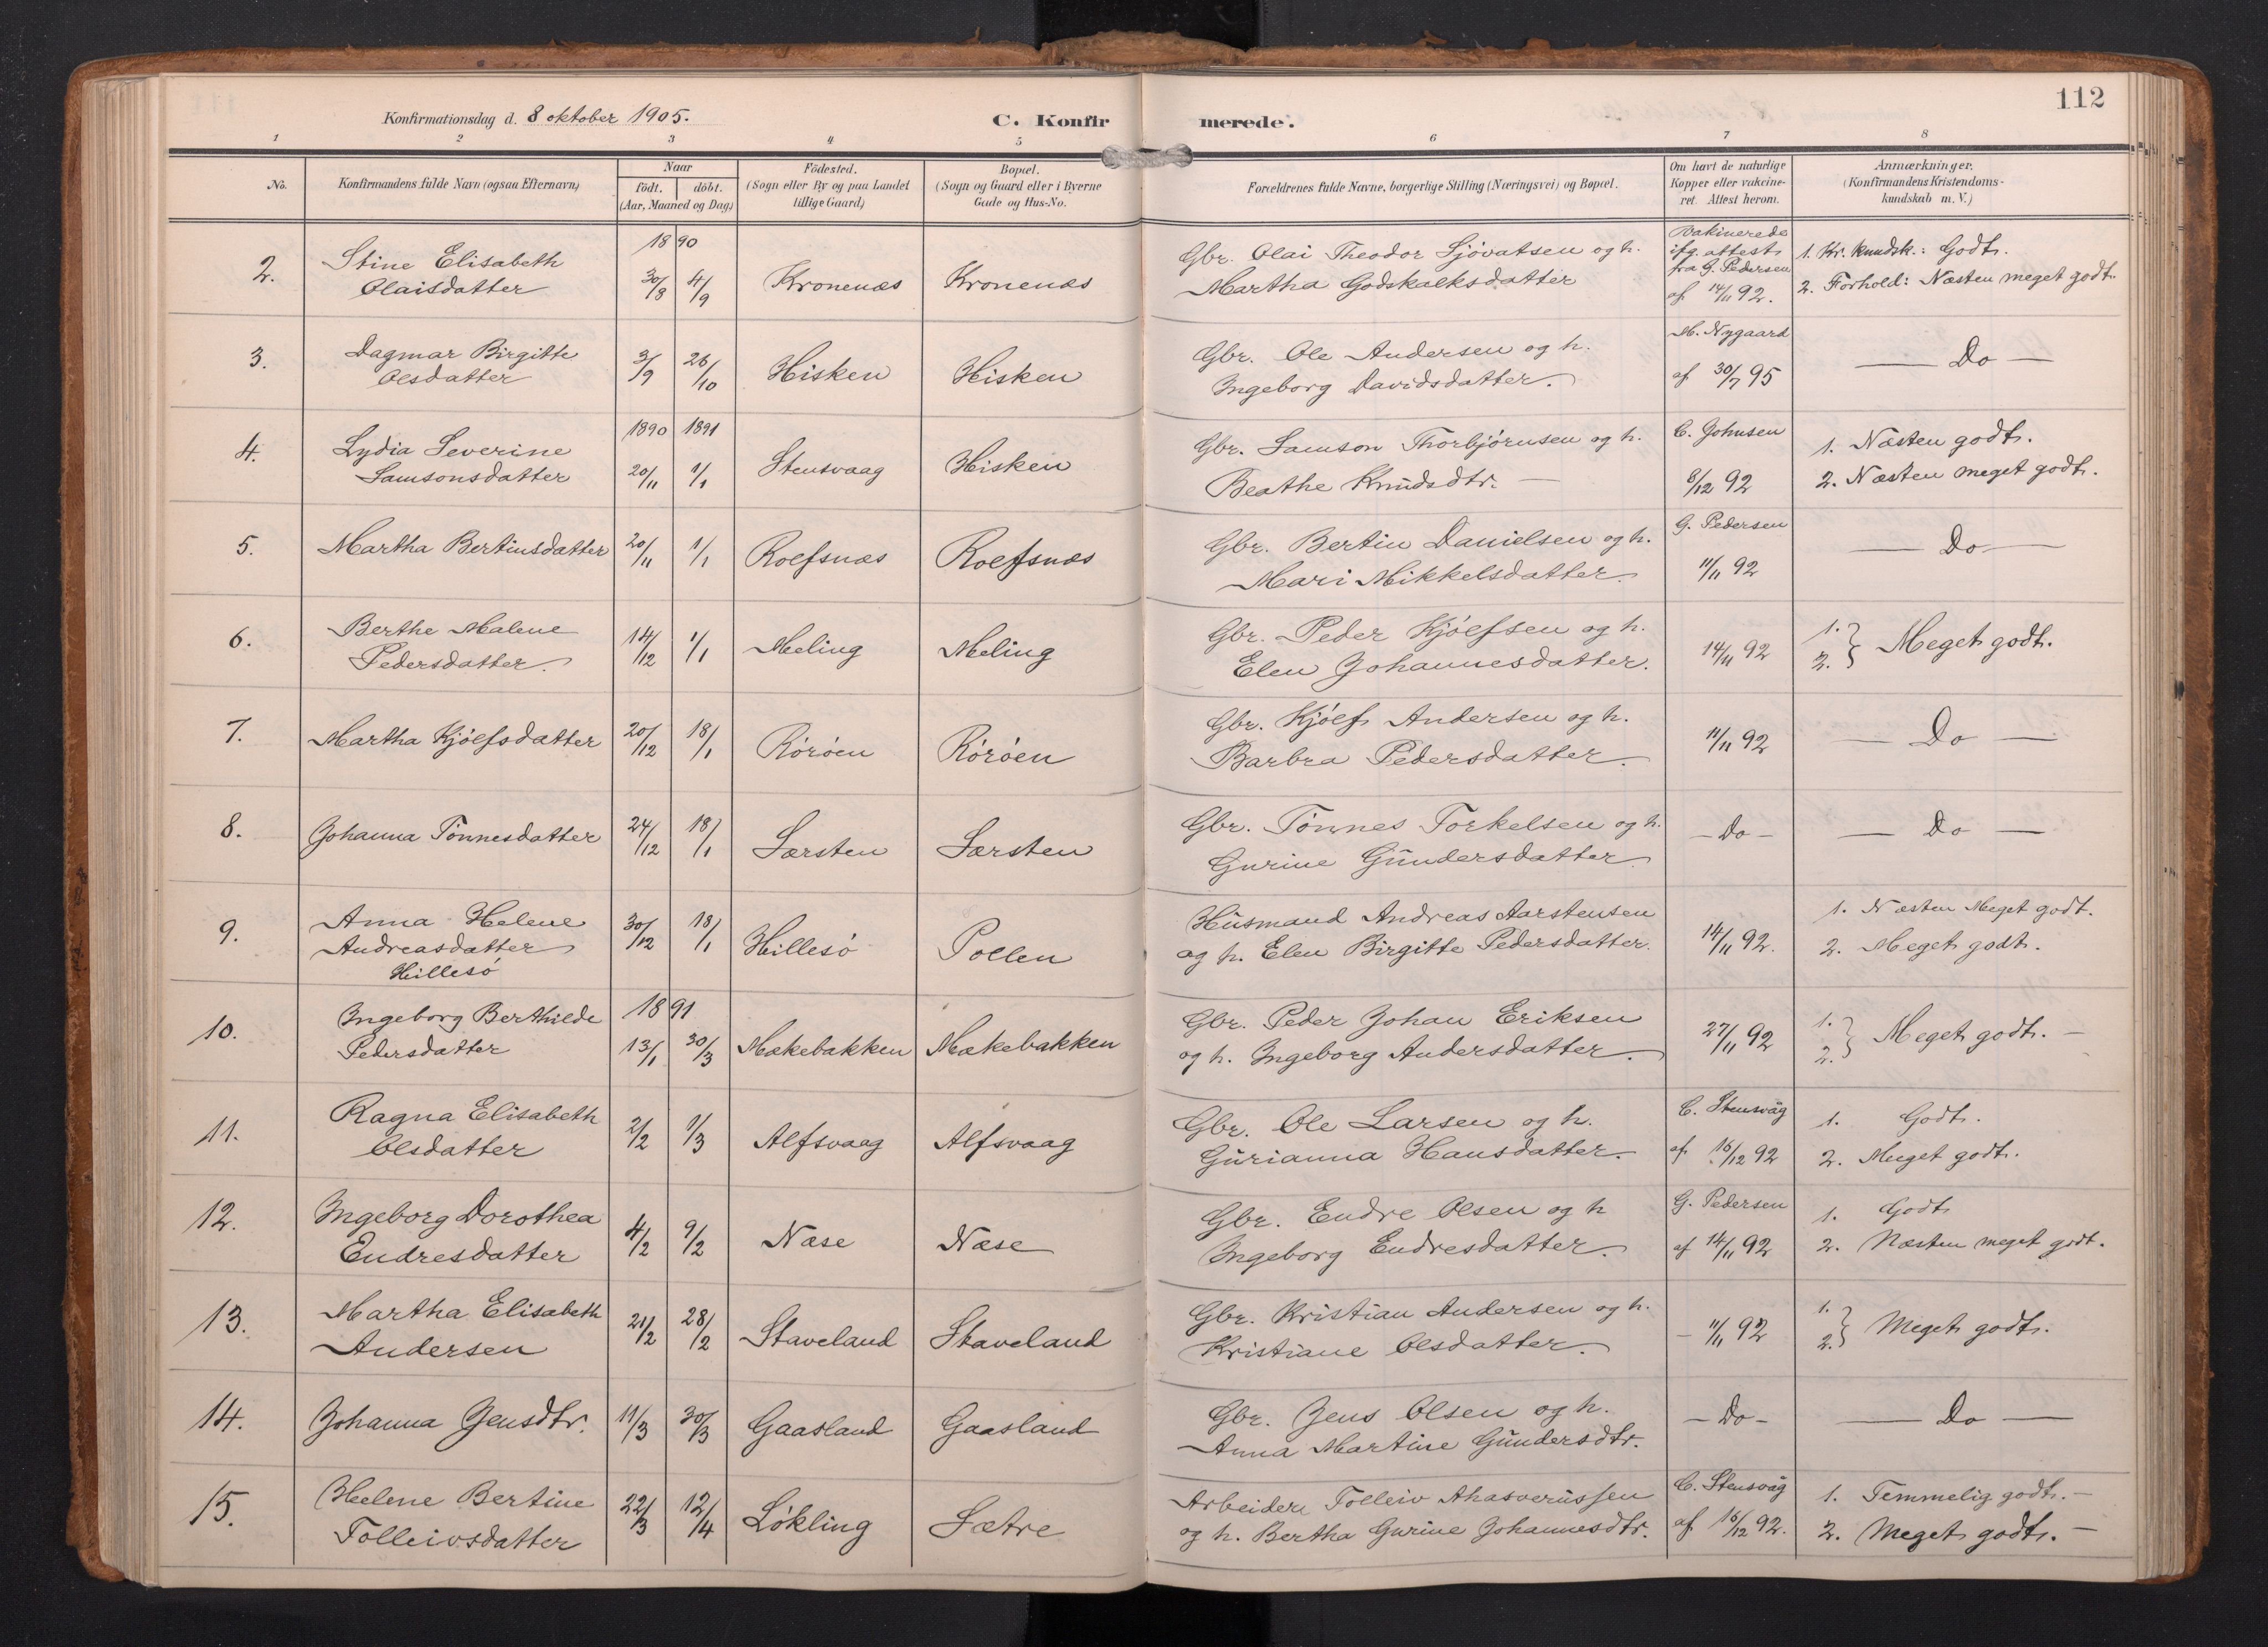 112
Konfirmationsdag d. 8 oktober 1905.
C. Konfirmerede.
1 2 3 4 5 6 7 8
No.
Konfirmandens fulde Navn (ogsaa Efternavn)
Naar
födt. döbt.
(Aar, Maaned og Dag)
Födested.
(Sogn eller By og paa Landet
tillige Gaard)
Bopæl.
(Sogn og Gaard eller i Byerne
Gade og Hus-No.
Forældrenes fulde Navne, borgerlige Stilling (Næringsvei) og Bopæl.
Om havt de naturlige
Kopper eller vakcine-
ret. Attest herom.
Anmærkninger.
(Konfirmandens Kristendoms-
kundskab m. V.)
2.
Stine Elisabeth
Olaisdatter
1890
30/8 4/9
Kronenæs
Kronenæs
Gbr. Olai Theodor Sjövatsen og h.
Martha Godskalksdatter
Vakinerede
ifg. attest
fra G. Pedersen
af 14/11 92.
1. Kr. kundsk.: Godt.
2. Forhold: Næsten meget godt.
3.
Dagmar Birgitte
Olsdatter
3/9 26/10
Hisken
Hisken
Gbr. Ole Andersen og h.
Ingeborg Davidsdatter.
M. Nygaard
af 30/7 95
— Do —
4.
Lydia Severine
Samsonsdatter
1890 1891
20/11 1/1
Stensvaag
Hisken
Gbr. Samson Thorbjörnsen og h.
Beathe Knudsdtr. —
C. Johnsen
8/12 92
1. Næsten godt.
2. Næsten meget godt.
5.
Martha Bertinsdatter
20/11 1/1
Roefsnæs
Roefsnæs
Gbr. Bertin Danielsen og h.
Mari Mikkelsdatter.
G. Pedersen
11/11 92
— Do —
6.
Berthe Malene
Pedersdatter.
14/12 1/1
Meling
Meling
Gbr. Peder Kjölfsen og h.
Elen Johannesdatter.
14/11 92
1.
2. } Meget godt.
7.
Martha Kjölfsdatter
20/12 18/1
Röröen
Röröen
Gbr. Kjölf Andersen og h.
Barbra Pedersdatter.
11/11 92
— Do —
8.
Johanna Tönnesdatter
24/12 18/1
Særsten
Særsten
Gbr. Tönnes Torkelsen og h.
Gurine Gundersdatter.
— Do —
— Do —
9.
Anna Helene
Andreasdatter
Hillesö
30/12 18/1
Hillesö
Pollen
Husmand Andreas Aarstensen
og h. Elen Birgitte Pedersdatter.
14/11 92.
1. Næsten Meget godt.
2. Meget godt.
10.
Ingeborg Berthilde
Pedersdatter
1891
13/1 30/3
Mækebakken
Mækebakken
Gbr. Peder Johan Eriksen
og h. Ingeborg Andersdatter.
27/11 92
1.
2. } Meget godt. —
11.
Ragna Elisabeth
Olsdatter
2/2 1/3
Alfsvaag
Alfsvaag
Gbr. Ole Larsen og h.
Gurianna Hansdatter.
C. Stensvåg
af. 16/12 92
1. Godt.
2. Meget godt.
12.
Ingeborg Dorothea
Endresdatter
4/2 9/2
Næse
Næse
Gbr. Endre Olsen og h
Ingeborg Endresdatter.
G. Pedersen
af 14/11 92
1. Godt
2. Næsten meget godt.
13.
Martha Elisabeth
Andersen
21/2 28/2
Staveland
Staveland
Gbr. Kristian Andersen og h.
Kristiane Olsdatter.
— 11/11 92
1.
2. } Meget godt.
14.
Johanna Jensdtr.
11/3 30/3
Gaasland
Gaasland
Gbr. Jens Olsen og h.
Anna Martine Gundersdtr.
— Do —
— Do —
15.
Helene Bertine
Tolleivsdatter
22/3 12/4
Lökling
Sætre
Arbeider Tolleiv Ahasverussen
og h. Bertha Gurine Johannesdtr.
C. Stensvåg
af. 16/12 92.
1. Temmelig godt. —
2. Meget godt. —